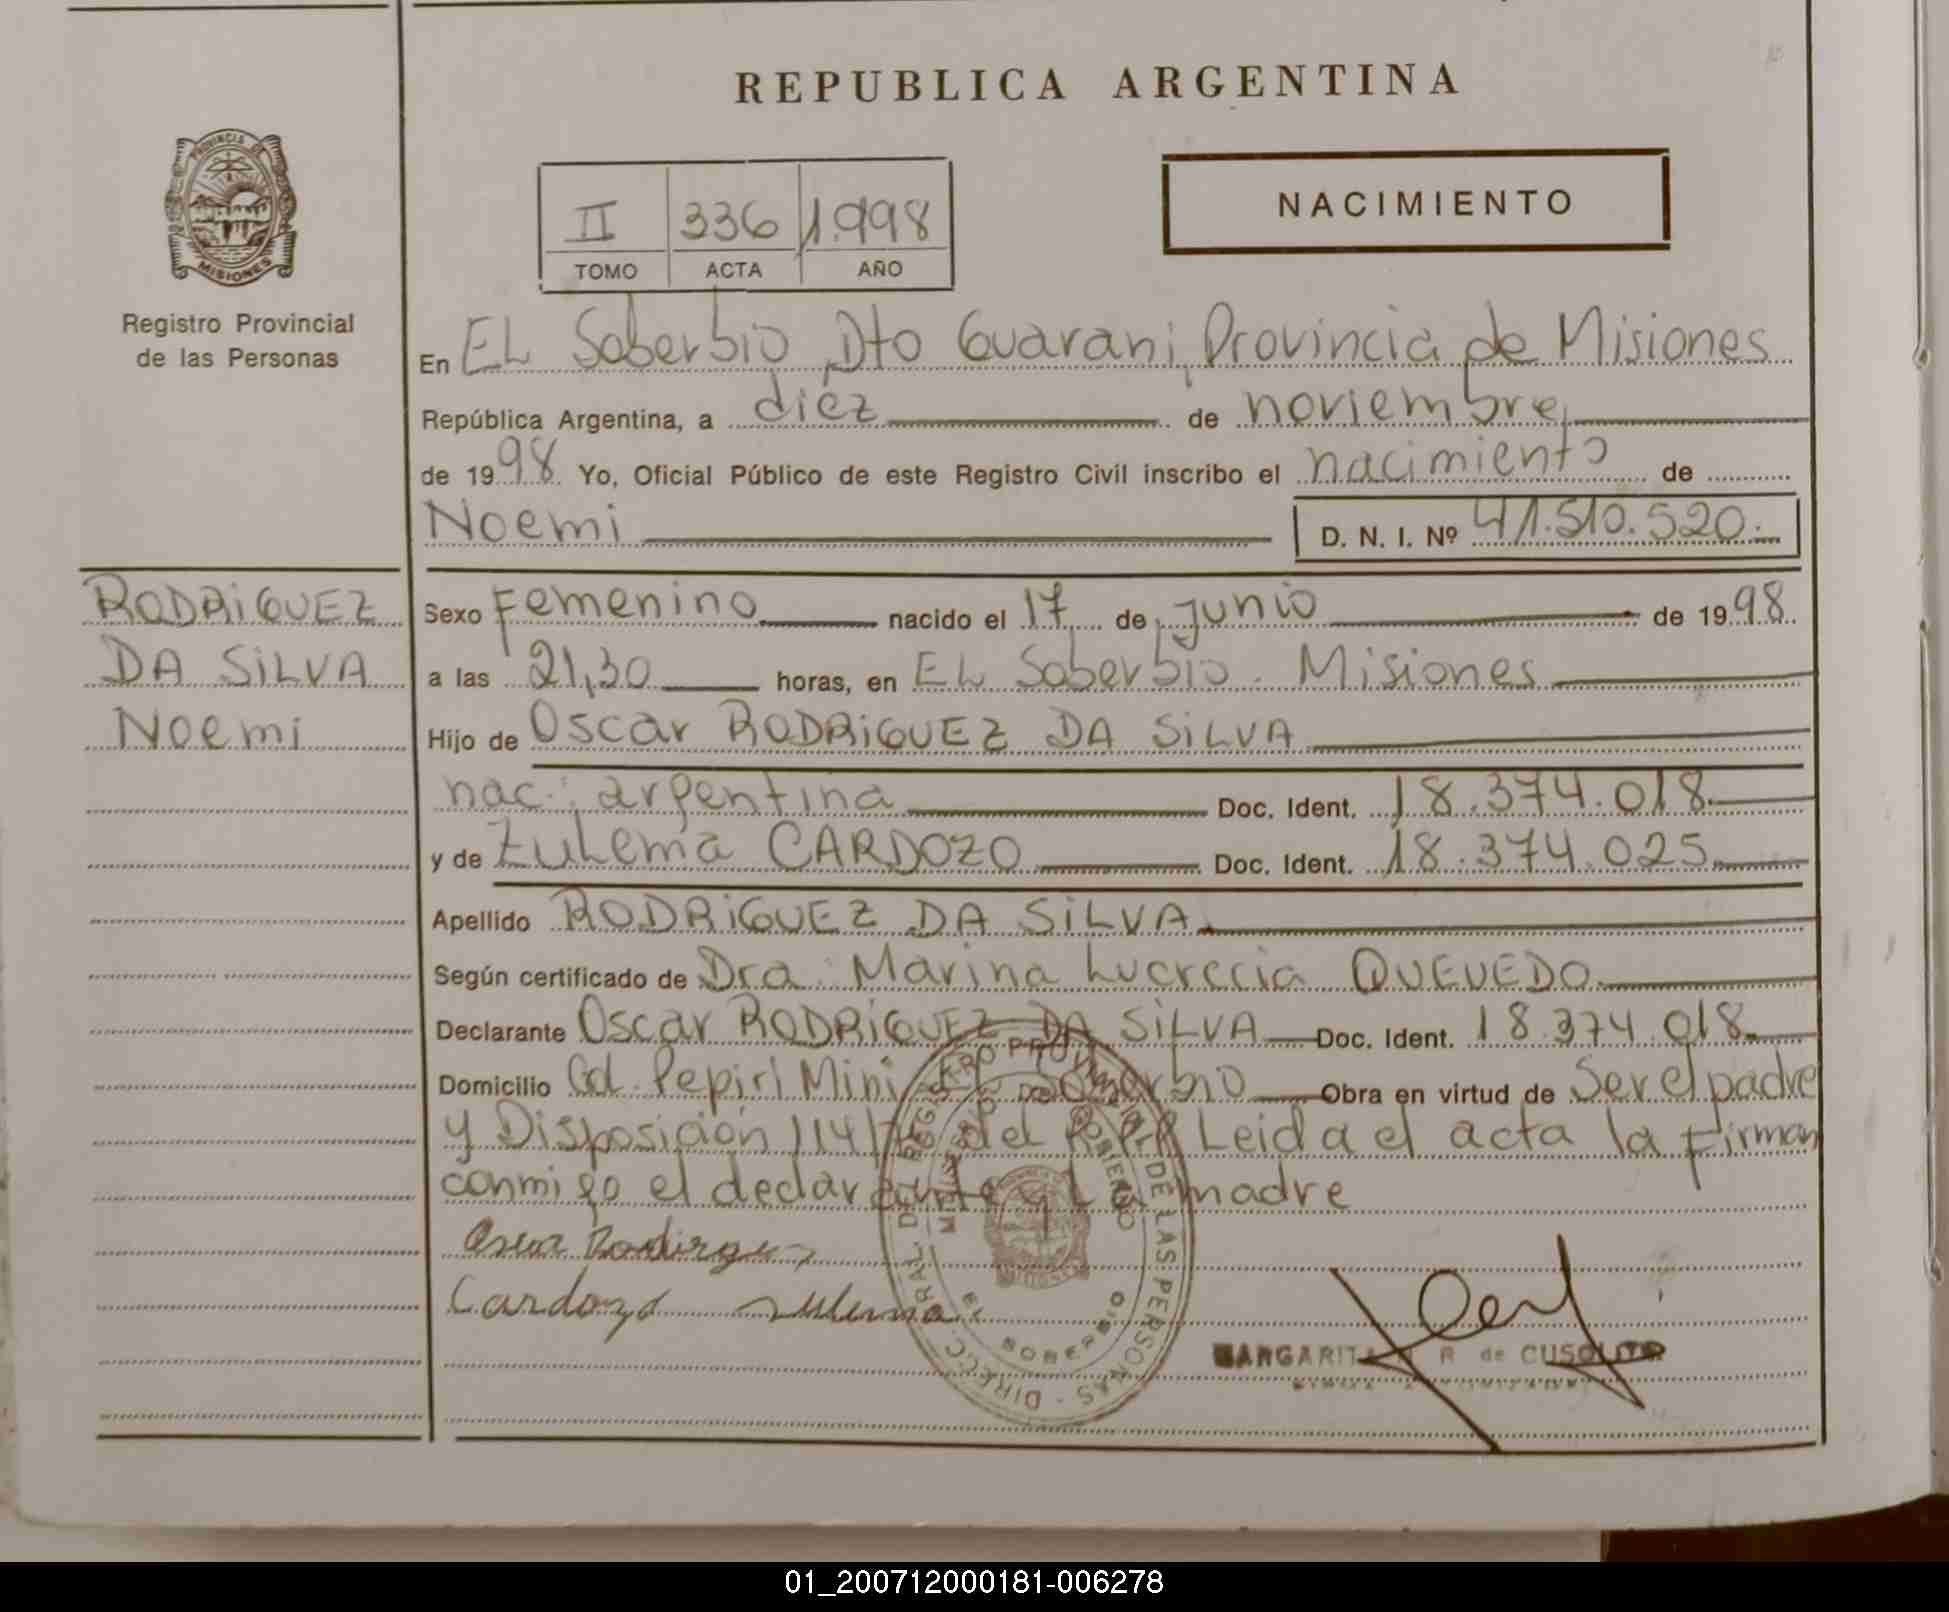 REPUBLICA ARGENTINA
PROVINCIA DE
MISIONES
Registro Provincial
de las Personas
II 336 1.998
TOMO ACTA AÑO
NACIMIENTO
En EL Soberbio, Dto Guarani, Provincia de Misiones
República Argentina, a diez de noviembre
de 1998 Yo, Oficial Público de este Registro Civil inscribo el nacimiento de
Noemi D. N. I. Nº 41.510.520.
RODRiGUEZ
DA SiLVA
Noemi
Sexo Femenino nacido el 17 de junio de 1998
a las 21,30 horas, en EL Soberbio. Misiones
Hijo de Oscar RODRiGUEZ DA SiLVA
nac.: argentina Doc. Ident. 18.374.018.
y de Zulema CARDOZO Doc. Ident. 18.374.025
Apellido RODRiGUEZ DA SiLVA
Según certificado de Dra. Marina Lucrecia QUEVEDO
Declarante Oscar RODRiGUEZ DA SiLVA Doc. Ident. 18.374.018
Domicilio Cd. Pepiri Mini Soberbio Obra en virtud de Ser el padre
y Disposición 114/ del Leida el acta la firman
conmigo el declarante y la madre
Oscar Rodirguez
Cardozo Zulema
DIRECC. GRAL. DEL REGISTRO PROVINCIAL DE LAS PERSONAS
EL SOBERBIO
MARGARITA R de
01_200712000181-006278